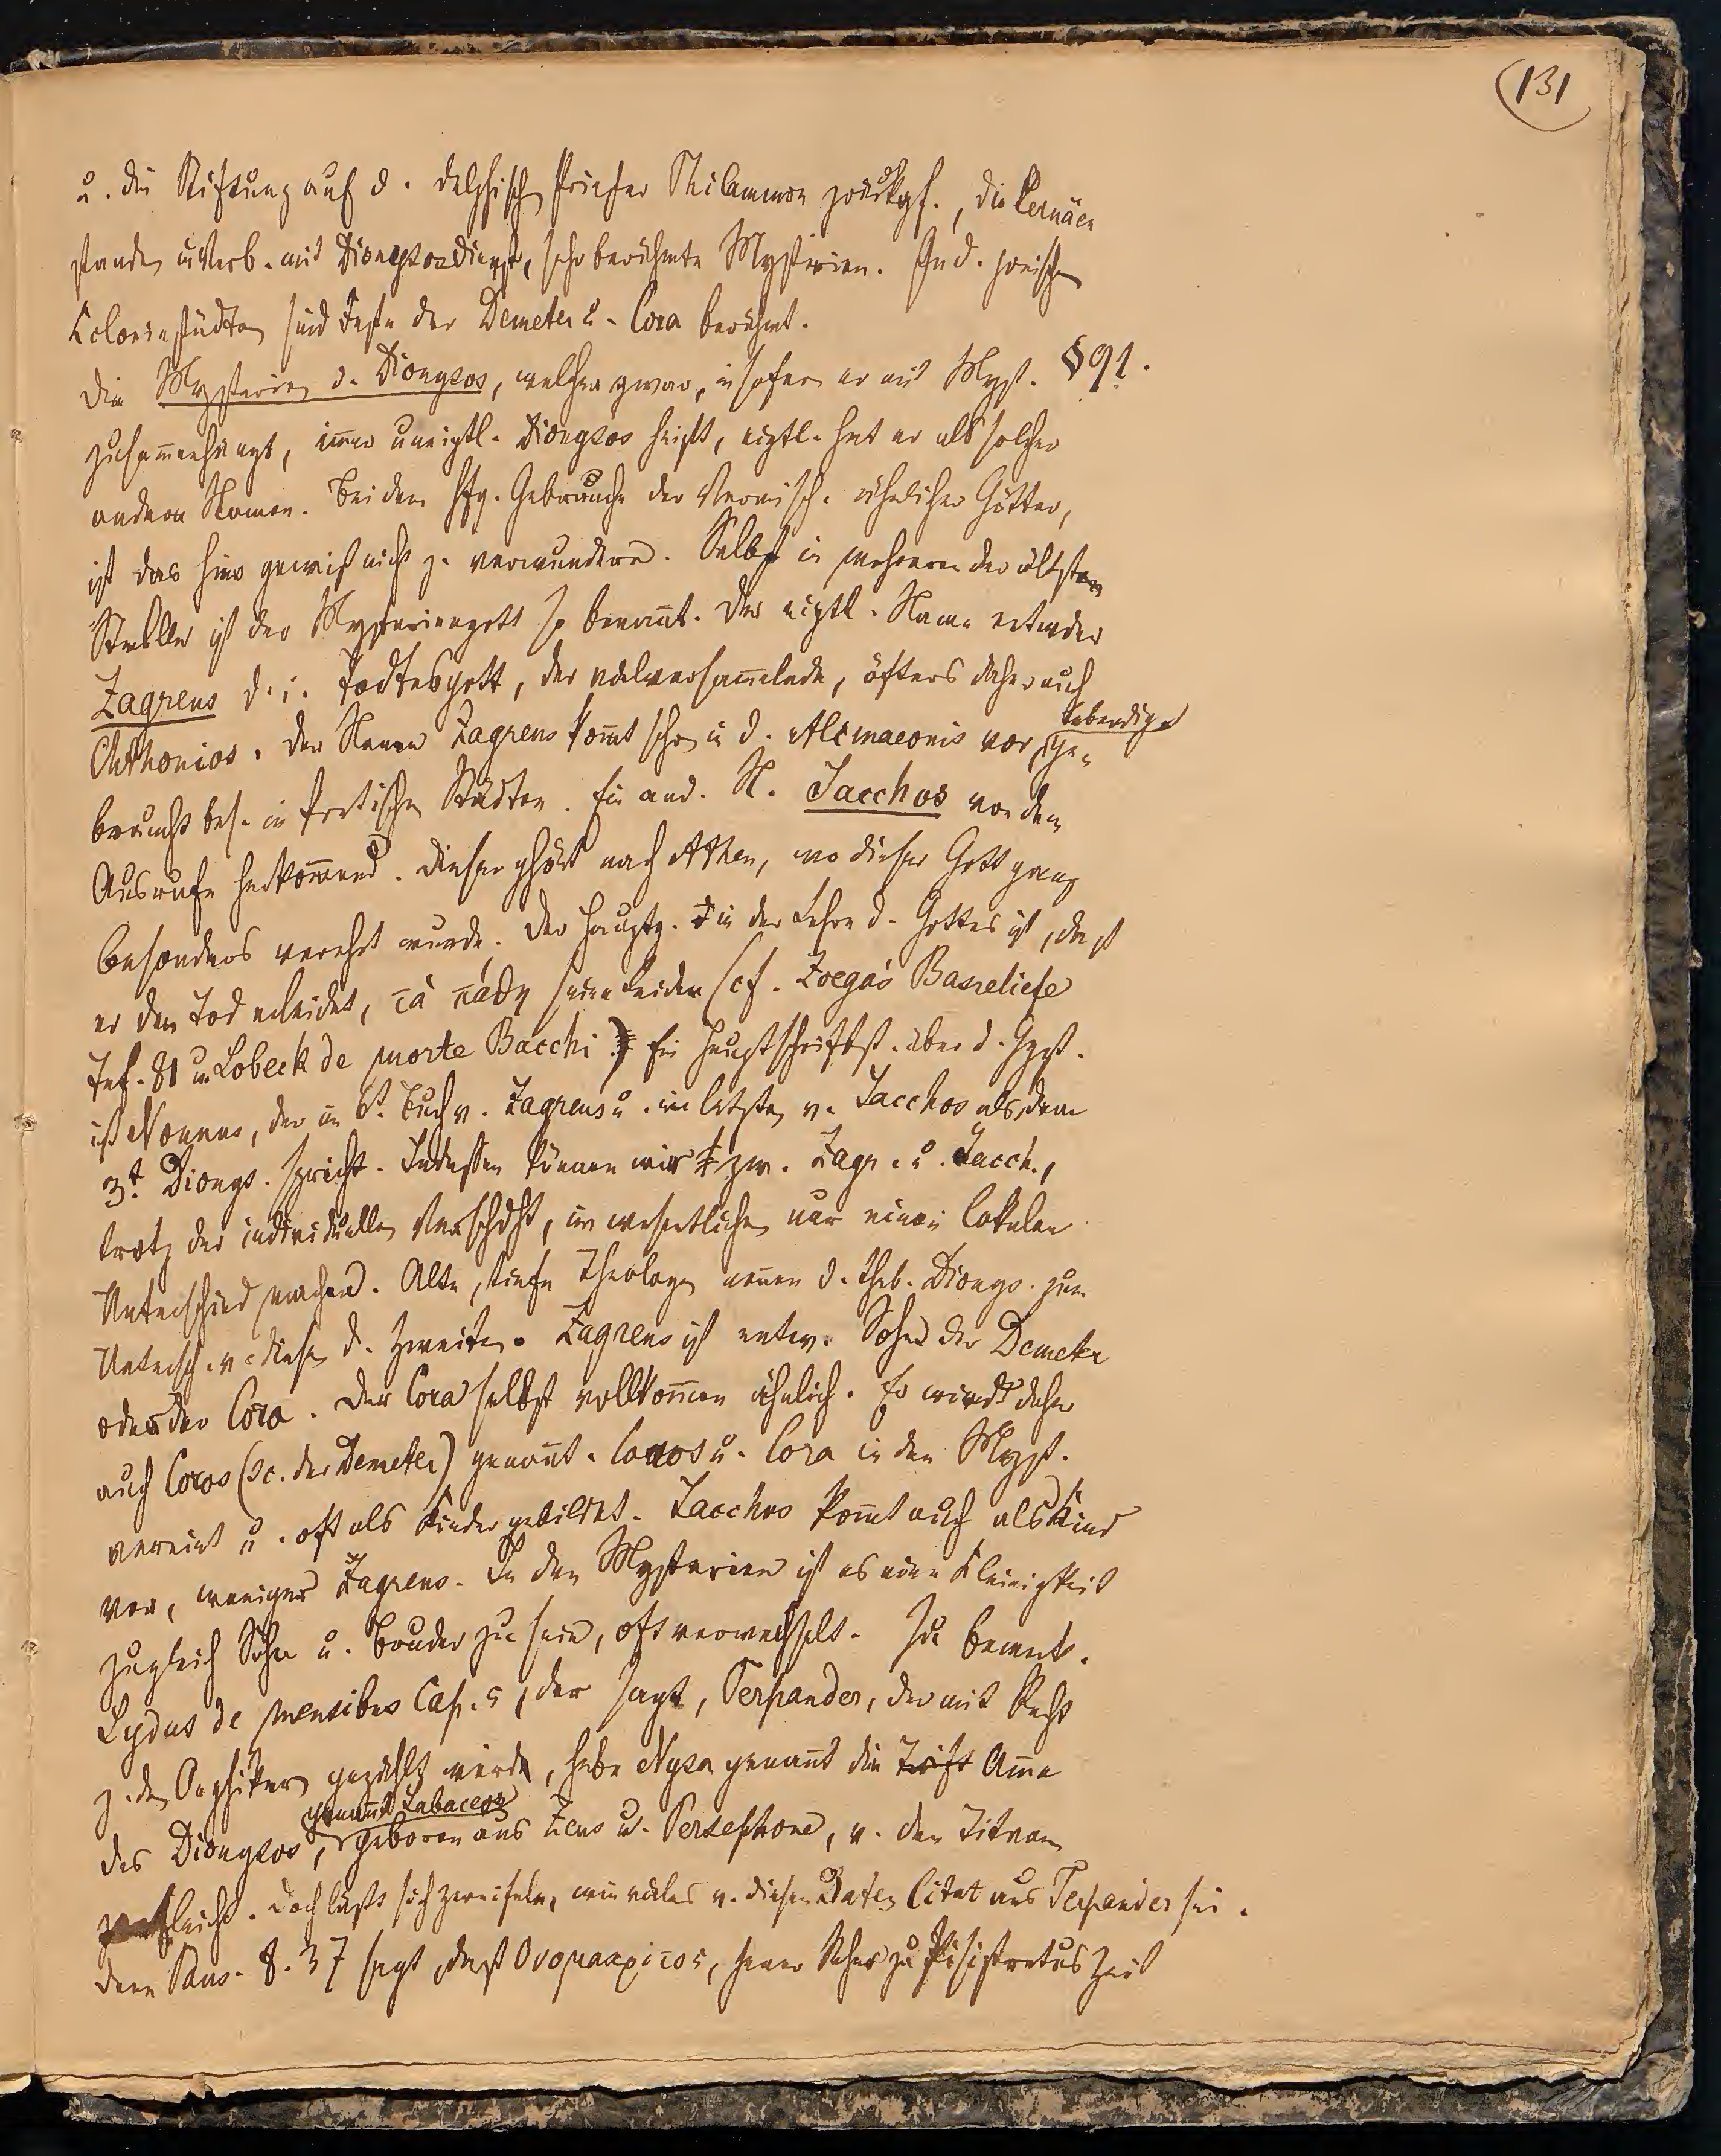 131
u. die Stiftung auf d. delphisch Priester Philammon zurückgf., die Lernäen
standen in Verb. mit Dionysosdienst, sehr berühmte Mysterien. In d. jonischen
Koloniestädten sind Feste der Demeter u. Cora berühmt.
Die Mysterien d. Dionysos, welcher zwar, in sofern er mit Myst. §91.
zusam̅enhängt, im̅er uneigtl. Dionysos heißt, eigtl. hat er als solcher
andere Namen. Bei dem Gebrauche der Vermisch. ähnlicher Götter,
ist das hier gewiß nicht z. verwundern. Selbst in mehreren der ältesten
Stellen ist der Mysteriengott so benan̅t. Der eigtl. Name entweder
Zagreus d. i. Todtesgott, der vielversam̅elnde, öfters daher auch
Chthonios. Der Name Zagreus kom̅t schon in d. Alcmaeonis vor, lebendiger ge-
braucht bes. in kretischen Städten. Ein and. N. Iacchos von dem
Ausrufe herkom̅end. Dieser ghört nach Athen, wo dieser Gott ganz
besonders verehrt wurde. Der Hauptg. in der Lehre d. Gottes ist, daß
er den Tod erleidet, τὰ πάθη seine Leiden (cf. Zoega's Basreliefe
Taf. 81 u. Lobeck de morte Bacchi) Ein Hauptschriftst. über d. Ggst.
ist Nonnus, der im 6t. Buch v. Zagreus u. im letzten v. Iacchos als dem
3t. Dionys. spricht. Indessen können wir zw. Zagr. u. Iacch.,
trotz der individuellen Verschdht, im wesentlichen nur einen lokalen
Unterschied machen. Alte, tiefe Theologen nennen d. theb. Dionys. zum
Untersch. v. diesen d. zweiten. Zagreus ist entw. Sohn der Demeter
oder der Cora. Der Cora selbst vollkom̅en ähnlich. Er wird daher
auch Coros (sc. der Demeter) genan̅t. Coros u. Cora in den Myst.
vereint u. oft als Kinder gebildet. Iacchos kom̅t auch als Kind
vor, weniger Zagreus. In den Mysterien ist es eine Kleinigkeit
zugleich Sohn u. Bruder zu sein, oft verwechselt. Zu bemerk.
Lydus de mensibus Cap. 5, der sagt, Terpander, der mit Recht
z. den Orphikern gezählt werde, habe Nysa genan̅t die Am̅e
des Dionysos, genan̅t Sabaceos geboren aus Zeus u. Persephone, v. den Titanen
zerfleischt. Doch läßt sich zweifeln, wie vieles v. diesen Daten Citat aus Terpander sei.
Denn Paus. 8. 37 sagt, daß Ονομακριτος, jener Seher zu Pisistratus Zeit